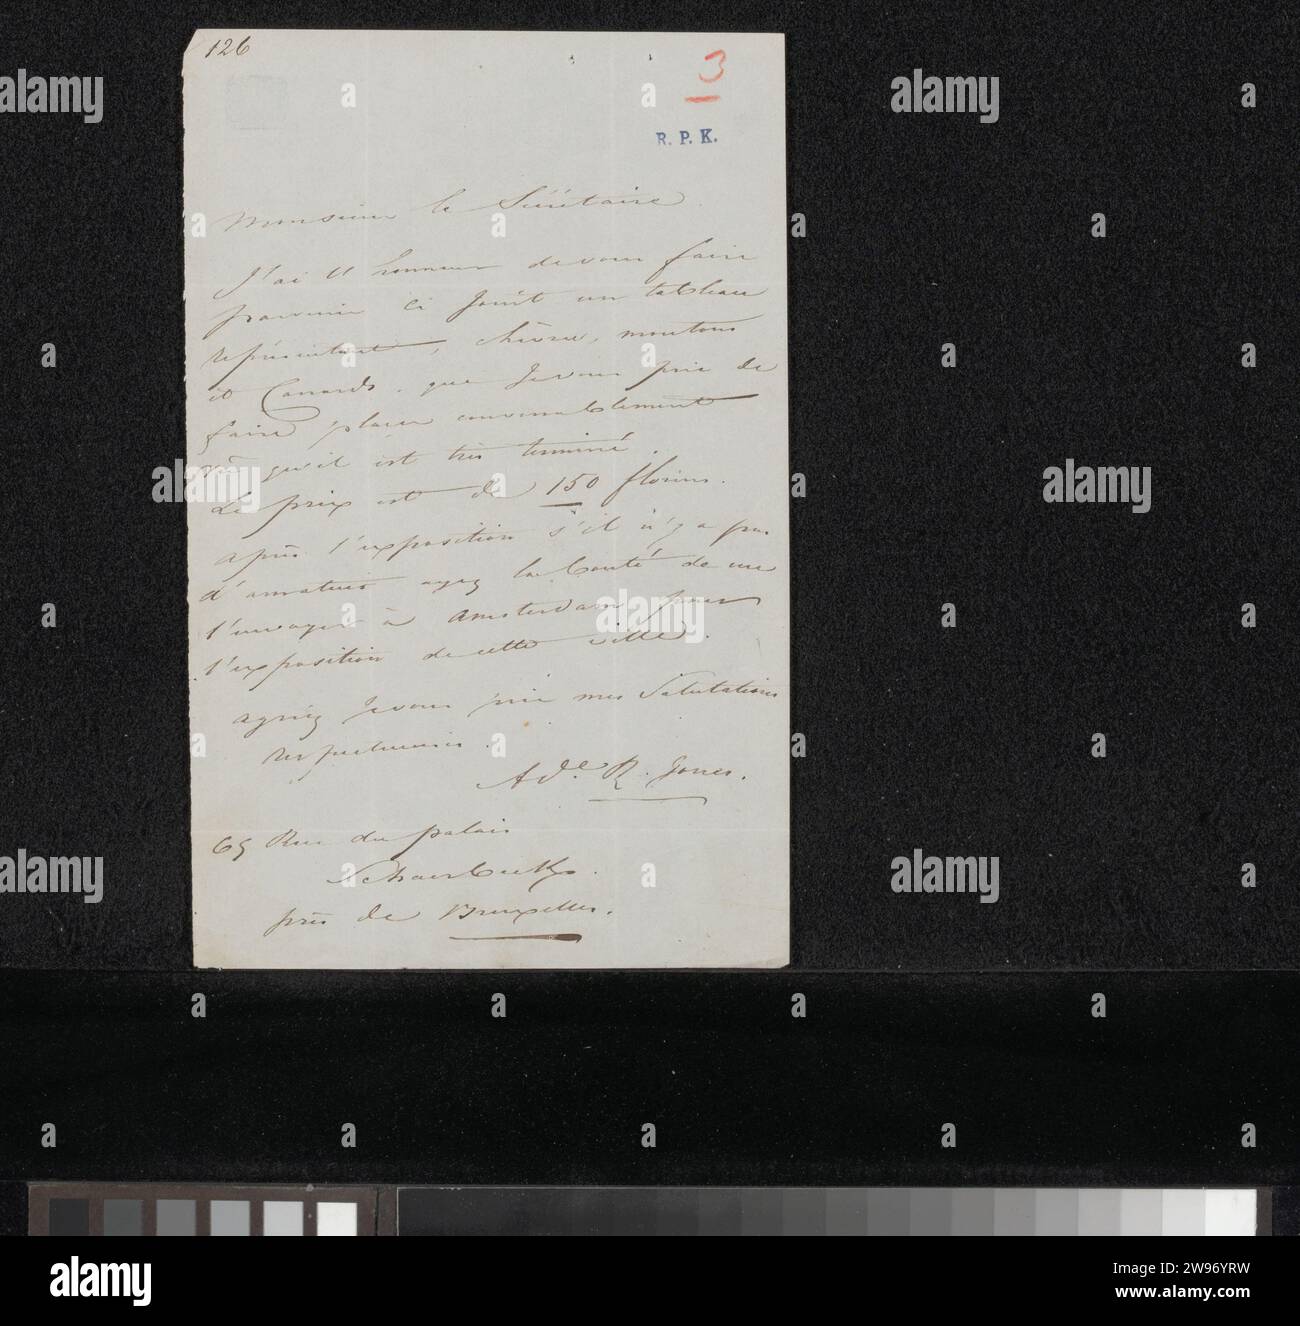 126
3
R. P. K.
Monsieur le Secrétaire
J'ai l'honneur de vous faire
parvenir ci joint un tableau
représentant, chèvre, moutons
et Canards. que je vous prie de
faire placer convenablement
vu qu'il est très terminé.
Le prix est de 150 florins.
après l'exposition s'il n'y a pas
d'amateurs ayez la bonté de me
l'envoyer à Amsterdam pour
l'exposition de cette ville.
agréez je vous prie mes Salutations
respectueuses.
Ade. R. Jones.
65 Rue du palais
Schaerbeek.
près de Bruxelles.
alamy
a
alamy
Image ID: 2W96YRW
www.alamy.com